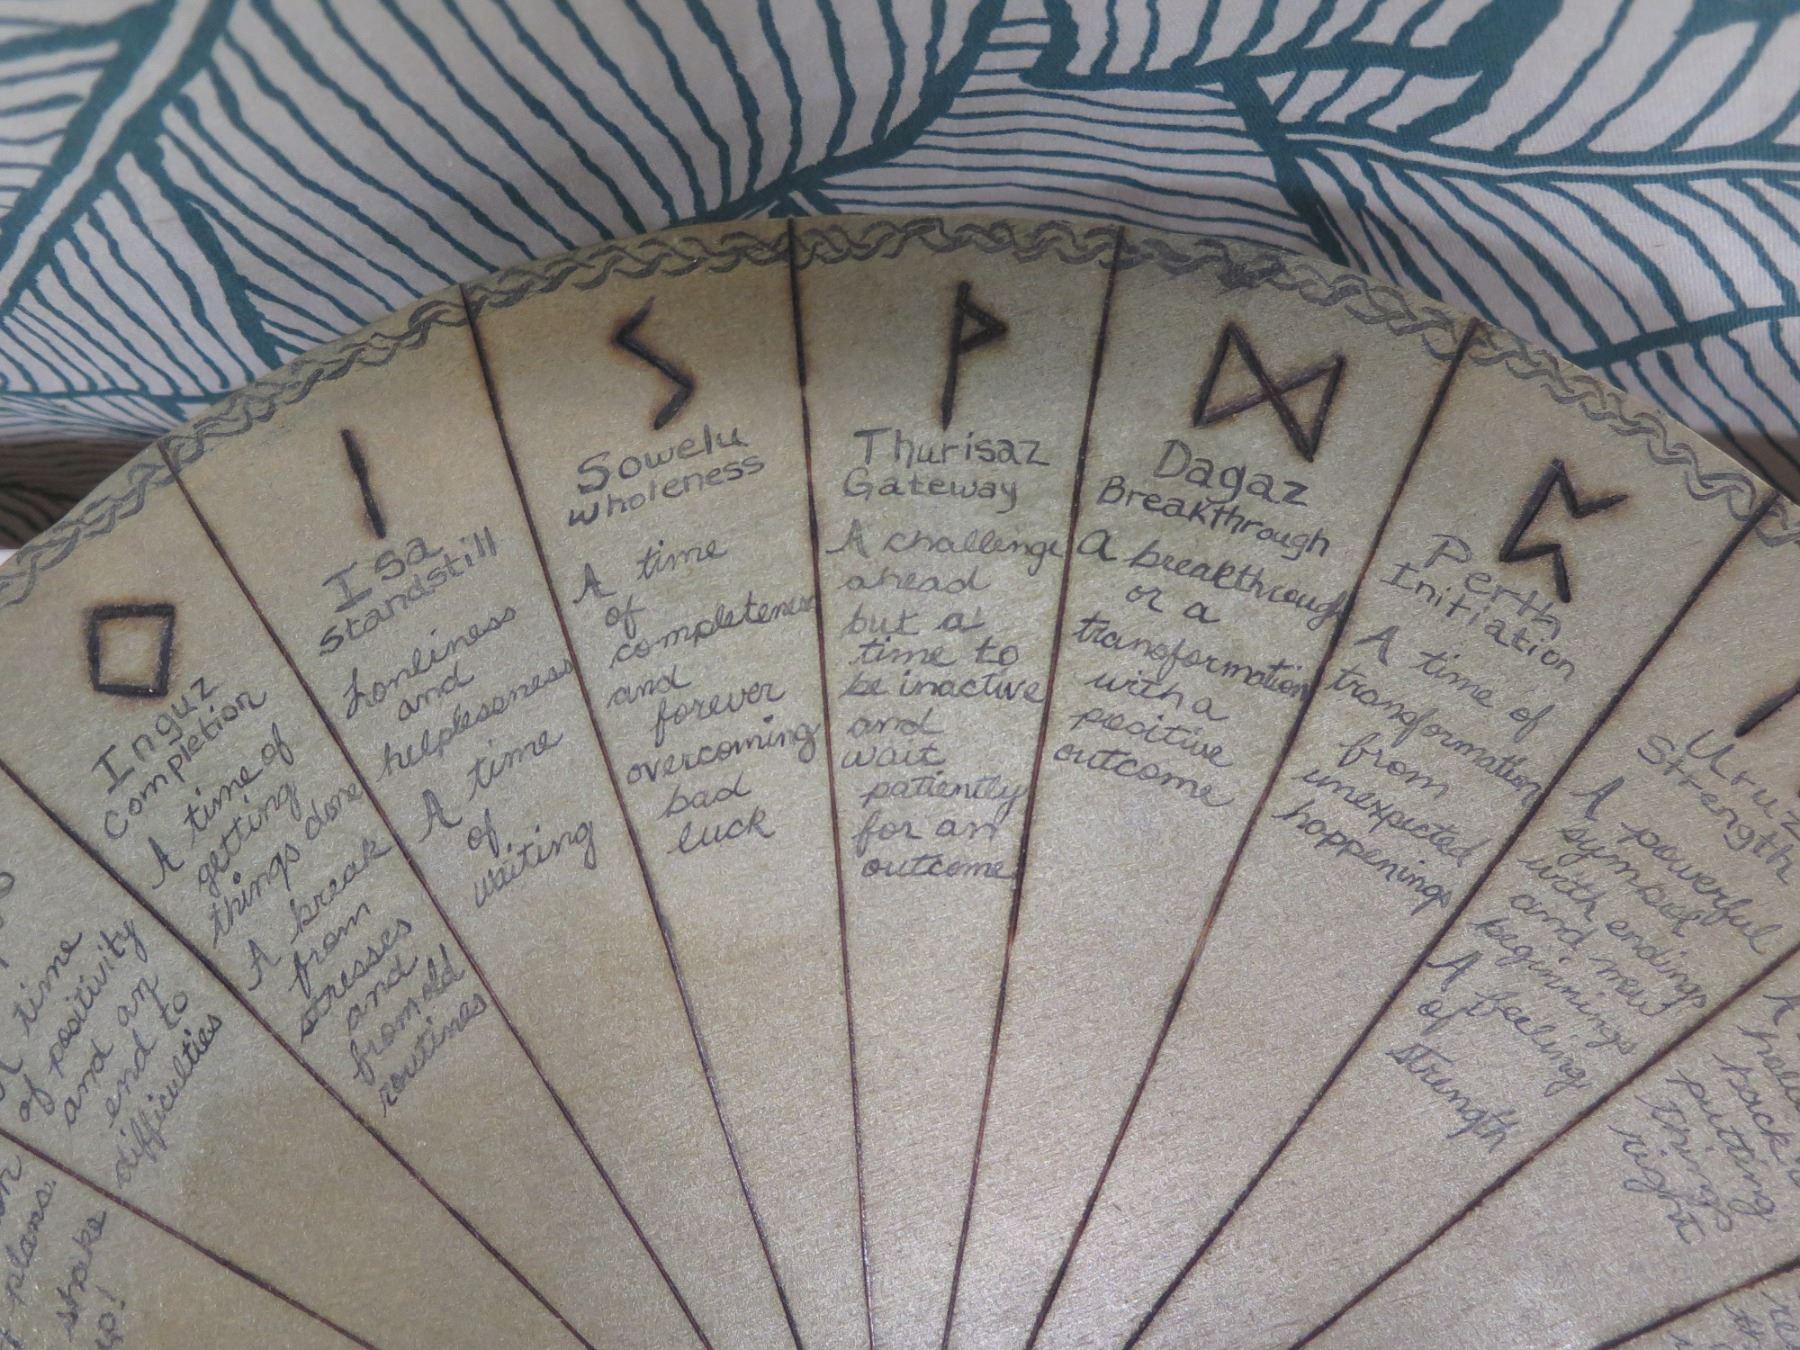 time
of positivity
and an
end to
difficulties
plans.
shake
up!
Inguz
Completion
A time of
getting
things done
A break
from
stresses
and
from old
routines
Isa
Standstill
Lonliness
and
helplessness
A time
of
waiting
Sowelu
Wholeness
A time
of
completeness
and
forever
overcoming
bad
luck
Thurisaz
Gateway
A challenge
ahead
but a
time to
be inactive
and
wait
patiently
for an
outcome
Dagaz
Breakthrough
a breakthrough
or a
transformation
with a
positive
outcome
Perth
Initiation
A time of
transformation
from
unexpected
happenings
Uruz
Strength
A powerful
symbol
with endings
and new
beginnings
A feeling
of
strength
A
putting
things
right